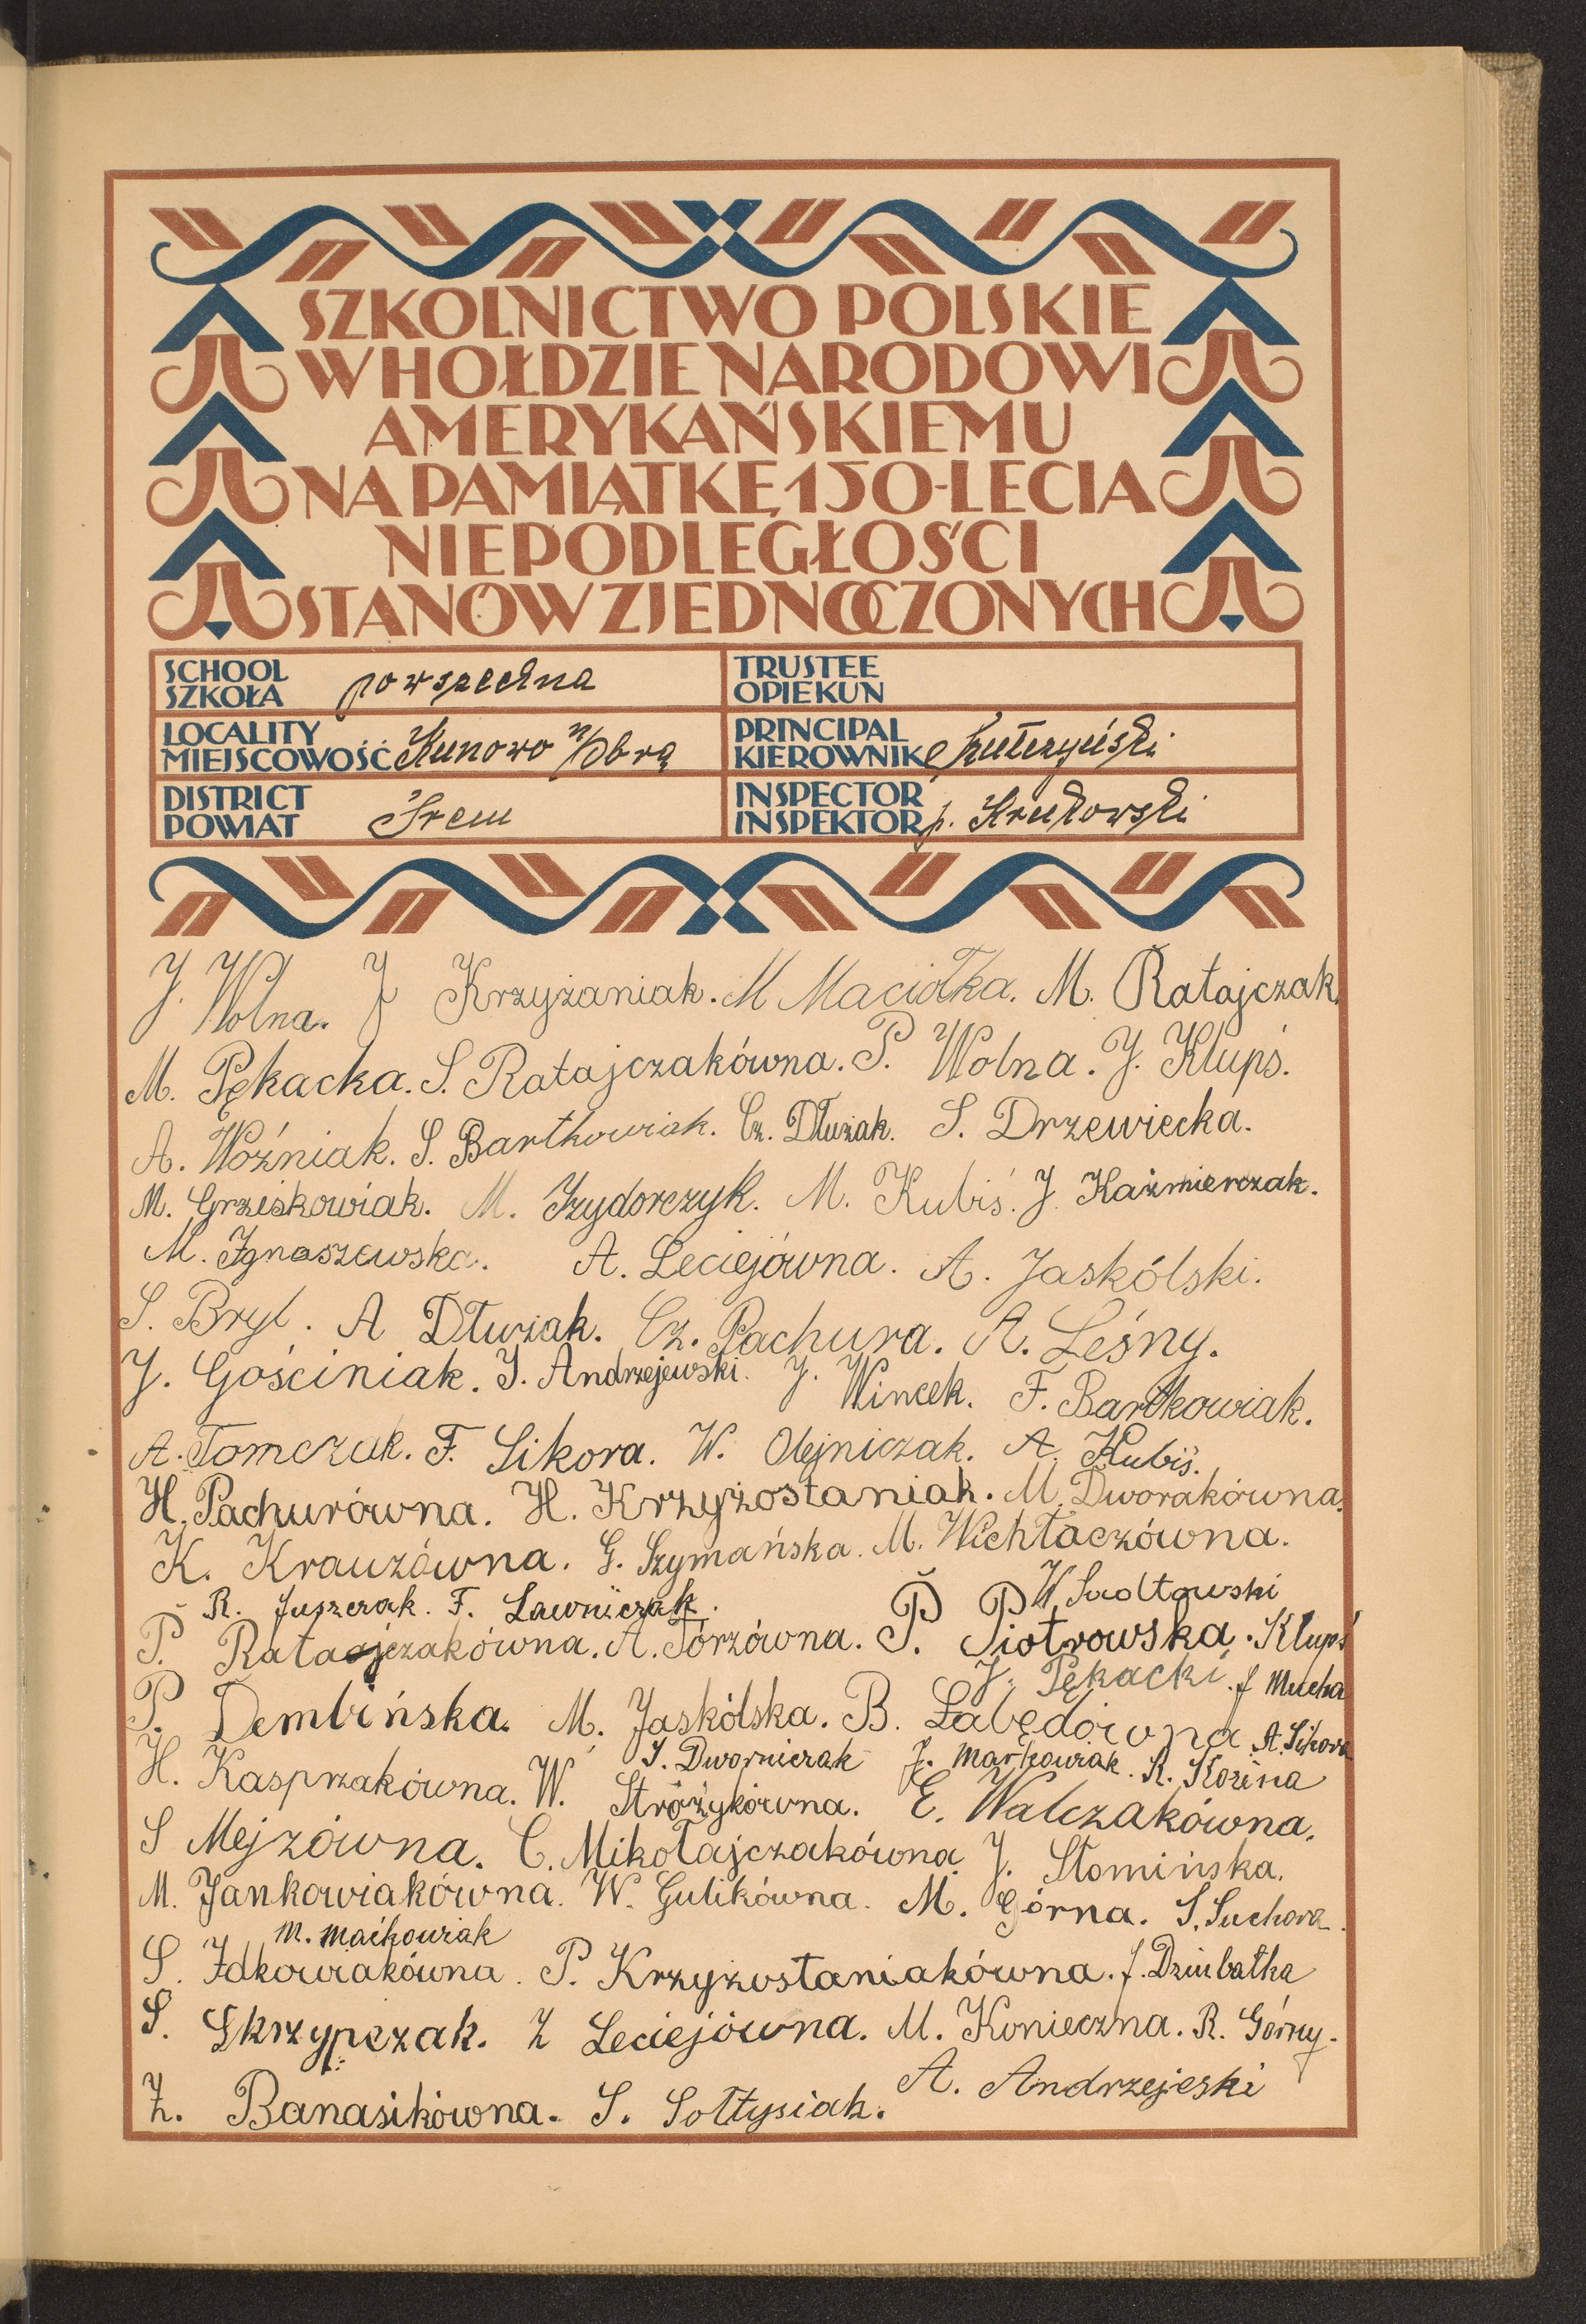 SZKOLNICTWO POLSKIE
W HOŁDZIE NARODOWI
AMERYKAŃSKIEMU
NA PAMIĄTKĘ 150-LECIA
NIEPODLEGŁOŚCI
STANÓW ZJEDNOCZONYCH
SCHOOL
SZKOŁA powszechna
TRUSTEE
OPIEKUN
LOCALITY
MIEJSCOWOŚĆ Kunowo n/Obrą
PRINCIPAL
KIEROWNIK
DISTRICT
POWIAT Śrem
INSPECTOR
INSPEKTOR p. Krukowski
J. Wolna. J Krzyżaniak. M Maciołka. M. Ratajczak.
M. Pękacka. S. Ratajczakówna. P. Wolna. J. Klupś.
A. Woźniak. S. Bartkowiak. Cz. Dłużak. S. Drzewiecka.
M. Grześkowiak. M. Izydorczyk. M. Kubiś. J. Kaźmierczak.
M. Ignaszewska. A. Leciejówna. A. Jaskólski.
S. Bryl. A Dłużak. Cz. Pachura. A. Leśny.
J. Gościniak. I. Andrzejewski. J. Wincek. F. Bartkowiak.
A. Tomczak. F. Sikora. W. Olejniczak. A. Kubiś.
H. Pachurówna. H. Krzyżostaniak. M. Dworakówna.
K. Krauzówna. G. Szymańska. M. Wichłaczówna.
R. Juszczak. F. Ławniczak. W. Sadłowski
P. Ratajczakówna. A. Tórzówna. P. Piotrowska. Klupś
J. Pękacki. J Mucha
P. Dembińska. M. Jaskólska. B. Łabędówna A. Sikora
S. Dworniczak J. Markowiak. R. Kozina
H. Kasprzakówna. W. Stróżykówna. E. Walczakówna.
S Mejzówna. C. Mikołajczakówna J. Słomińska.
M. Jankowiakówna. W. Gulikówna. M. Górna. S. Suchora.
M. Maćkowiak
S. Idkowiakówna. P. Krzyżostaniakówna. J. Dziubałka
S. Skrzypczak. Z Leciejówna. M. Konieczna. R. Górny.
Z. Banasikówna. S. Sołtysiak. A. Andrzejeski